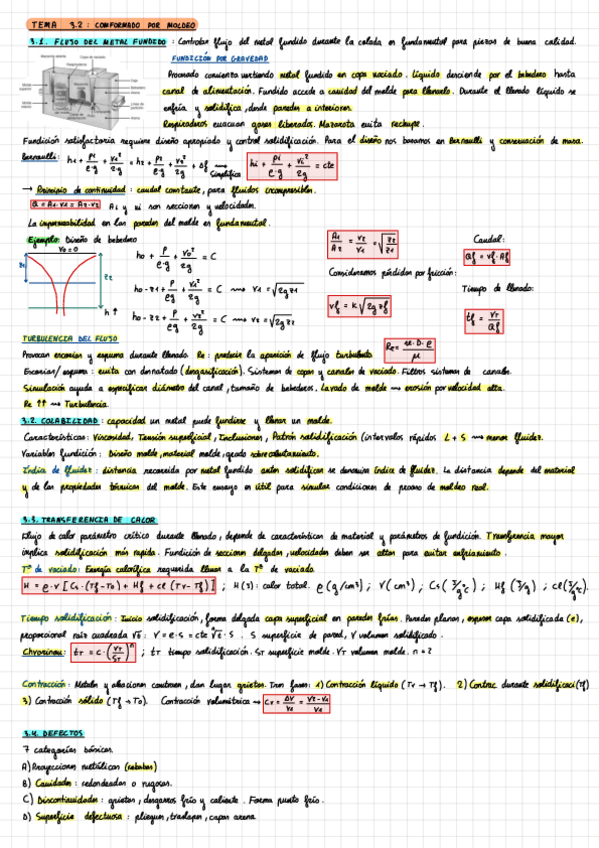 TEMA 3.2: CONFORMADO POR MOLDEO
3.1. FLUJO DEL METAL FUNDIDO: Controlar flujo del metal fundido durante la colada es fundamental para piezas de buena calidad.
FUNDICIÓN POR GRAVEDAD
Procesado comienza vertiendo metal fundido en copa vaciado. Líquido desciende por el bebedero hasta
canal de alimentación. Fundido accede a cavidad del molde para llenarlo. Durante el llenado líquido se
enfría y solidifica, desde paredes a interiores.
Respiraderos evacuan gases liberados. Mazarota evita rechupe.
Fundición satisfactoria requiere diseño apropiado y control solidificación. Para el diseño nos basamos en Bernaulli y conservación de masa.
Bernaulli: h1 + P1/ρ·g + v1²/2g = h2 + P2/ρ·g + v2²/2g + Δf → Simplifica hi + Pi/ρ·g + vi²/2g = cte
→ Principio de continuidad: caudal constante, para fluidos incompresibles.
Q = A1·v1 = A2·v2 Ai y vi son secciones y velocidades.
La impermeabilidad en las paredes del molde es fundamental.
Ejemplo: Diseño de bebedero
v0=0
z1
z2
h↑
h0 + P/ρ·g + v0²/2g = C
h0-z1 + P/ρg + v1²/2g = C → v1 = √2gz1
h0-z2 + P/ρg + v2²/2g = C → v2 = √2gz2
A1/A2 = v2/v1 = √z2/z1
Consideramos pérdidas por fricción:
vf = K√2gzf
Caudal:
Qf = vf·Af
Tiempo de llenado:
tf = VT/Qf
TURBULENCIA DEL FLUJO
Provocan escorias y espuma durante llenado. Re: predecir la aparición de flujo turbulento. Re = v·D·ρ/μ
Escorias/espuma: evita con desnatado (desgasificación). Sistemas de copas y canales de vaciado. Filtros sistemas de canales.
Simulación ayuda a especificar diámetro del canal, tamaño de bebederos. Lavado de molde → erosión por velocidad alta.
Re ↑↑ → Turbulencia
3.2. COLABILIDAD: capacidad un metal puede fundirse y llenar un molde.
Características: Viscosidad, Tensión superficial, Inclusiones, Patrón solidificación (intervalos rápidos L+S → menor fluidez.
Variables fundición: Diseño molde, material molde, grado sobrecalentamiento.
Índice de fluidez: distancia recorrida por metal fundido antes solidificar se denomina índice de fluidez. La distancia depende del material
y de las propiedades térmicas del molde. Este ensayo es útil para simular condiciones de proceso de moldeo real.
3.3. TRANSFERENCIA DE CALOR
Flujo de calor parámetro crítico durante llenado, depende de características de material y parámetros de fundición. Transferencia mayor
implica solidificación más rapida. Fundición de secciones delgadas, velocidades deben ser altas para evitar enfriamiento.
Tº de vaciado: Energía calorífica requerida llevar a la Tº de vaciado.
H = ρ·V[Cs·(Tf-To) + Hf + Cl(Tv-Tf)]; H(J): calor total. ρ(g/cm³); V(cm³); Cs(J/g°C); Hf(J/g); Cl(J/g°C).
Tiempo solidificación: Inicio solidificación, forma delgada capa superficial en paredes frías. Paredes planas, espesor capa solidificada (e),
proporcional raíz cuadrada √t: V = e·S = cte √t·S. S superficie de pared, V volumen solidificado.
Chvorinou: tT = C·(VT/ST)ⁿ; tT tiempo solidificación. ST superficie molde. VT volumen molde. n=2
Contracción: Metales y aleaciones contraen, dan lugar grietas. Tres fases: 1) Contracción líquido (Tv → Tf). 2) Contrac. durante solidificaci(Tf)
3) Contracción sólido (Tf → To). Contracción volumétrica → Cv = ΔV/V1 = V2-V1/V1
3.4. DEFECTOS
7 categorías básicas.
A) Proyecciones metálicas (rebabas)
B) Cavidades: redondeadas o rugosas.
C) Discontinuidades: grietas, desgarros frío y caliente. Forma punto frío.
D) Superficie defectuosa: pliegues, traslapes, capas arena.